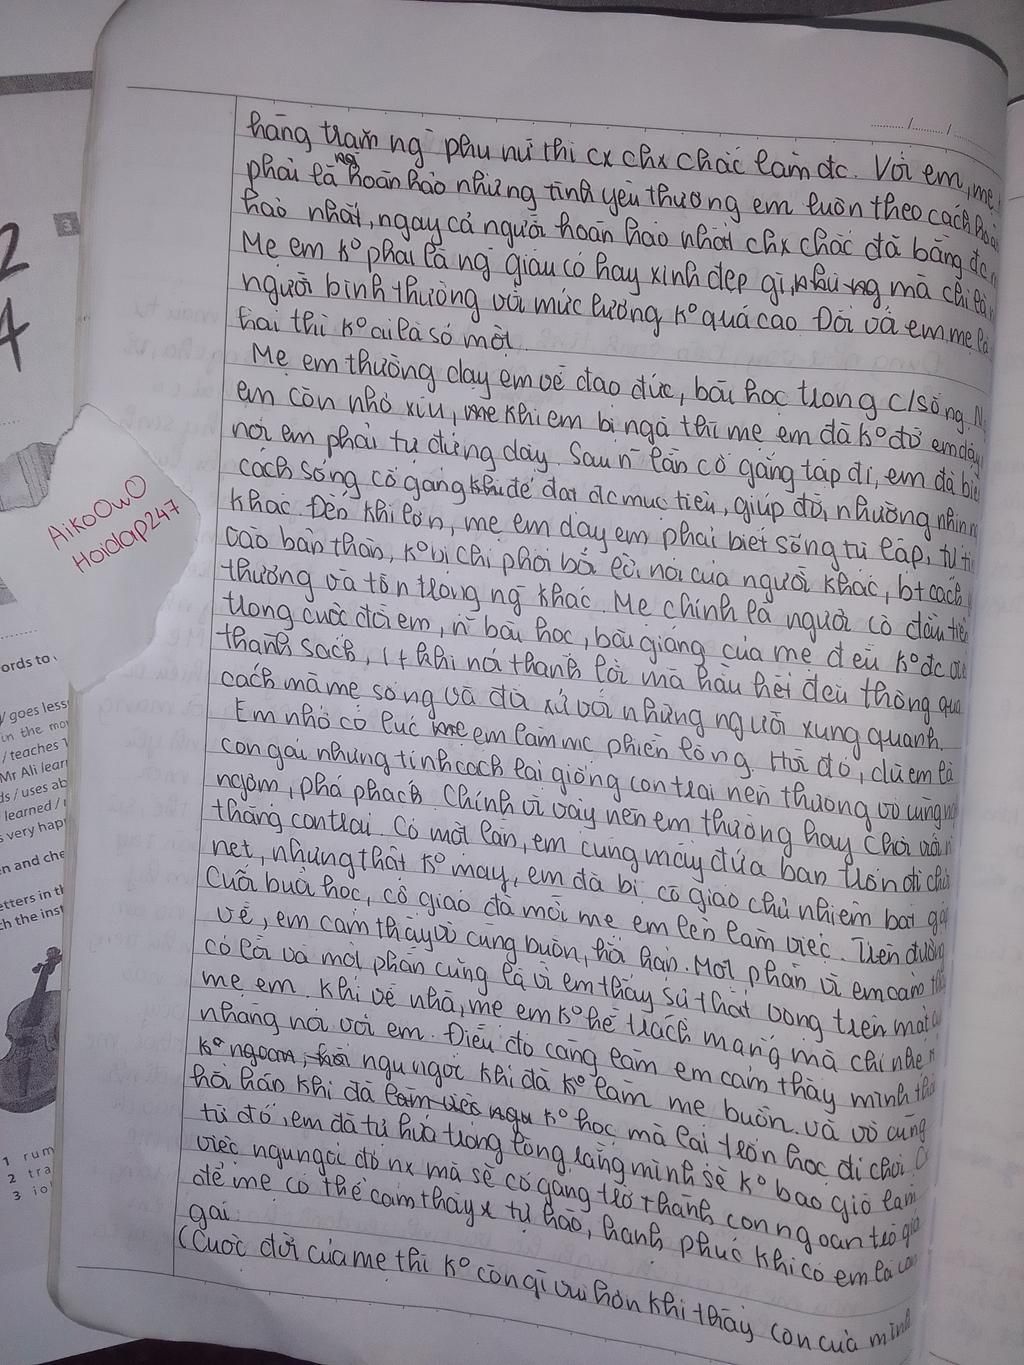 hàng trăm ng̃ phụ nữ thì cx chx chắc làm đc. Với em, mẹ
phải là ng hoàn hảo nhưng tình yêu thương em luôn theo cách hoàn
hảo nhất, ngay cả người hoàn hảo nhất chx chắc đã bằng đc
Mẹ em k° phải là ng̃ giàu có hay xinh đẹp gì, nhưng mà chỉ là
người bình thường với mức lương k° quá cao. Đối với em, mẹ là
hai thì k° ai là số một
Mẹ em thường dạy em về đạo đức, bài học trong c/sống.
em còn nhỏ xíu, mẹ khi em bị ngã thì mẹ em đã k° đỡ em dậy
nói em phải tự đứng dậy. Sau n̄ lần cố gắng tập đi, em đã biết
cách sống cố gắng khi để đạt đc mục tiêu, giúp đỡ, nhường nhịn
khác. Đến khi lớn, mẹ em dạy em phải biết sống tự lập, tự tin
vào bản thân, k° bị chi phối bởi lời nói của người khác, bt cách
thương và tôn trọng ng̃ khác. Mẹ chính là người cô đầu tiên
trong cuộc đời em, n̄ bài học, bài giảng của mẹ đều k° đc
thành sách, ít khi nói thành lời mà hầu hết đều thông qua
cách mà mẹ sống và đối xử với những người xung quanh.
Em nhớ có lúc mẹ em làm mẹ phiền lòng. Hồi đó, dù em là
con gái nhưng tính cách lại giống con trai nên thường vô cùng
ngợm, phá phách. Chính vì vậy nên em thường hay chơi với n̄
thằng con trai. Có một lần, em cùng mấy đứa bạn trốn đi chơi
net, nhưng thật k° may, em đã bị cô giáo chủ nhiệm bắt gặp
Cuối buổi học, cô giáo đã mời mẹ em lên làm việc. Trên đường
về, em cảm thấy vô cùng buồn, hối hận. Một phần vì em cảm thấy
có lỗi và một phần cũng là vì em thấy sự thất vọng trên mặt
mẹ em. Khi về nhà, mẹ em k° hề trách mắng mà chỉ nhẹ
nhàng nói với em. Điều đó càng làm em cảm thấy mình thật
k° ngoan, thật ngu ngốc khi đã k° làm mẹ buồn và vô cùng
hối hận khi đã làm việc ngu k° học mà lại trốn học đi chơi.
từ đó, em đã tự hứa trong lòng rằng mình sẽ k° bao giờ làm
việc ngu ngốc đó nx mà sẽ cố gắng trở thành con ngoan trò giỏi
để mẹ có thể cảm thấy tự hào, hạnh phúc khi có em là con
gái
(Cuộc đời của mẹ thì k° còn gì vui hơn khi thấy con của mình
AikoOwO
Hoidap247
3
2
4
ords to
y goes less
in the mo
/ teaches
Mr Ali lear
ds / uses ab
learned /
s very hap
en and che
etters in th
ch the inst
1 rum
2 tra
3 iol